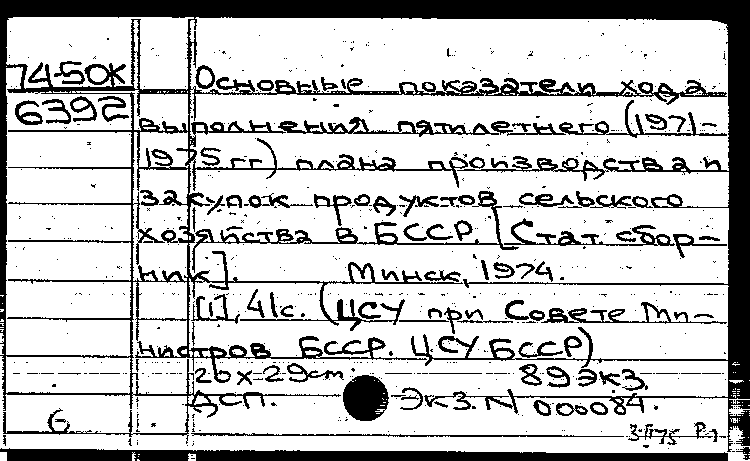 74-50К Основные показатели хода
6392 выполнения пятилетнего (1971-
1975 гг) плана производства и
закупок продуктов сельского
хозяйства в БССР. [Стат. сбор-
ник]. Минск, 1974.
[1], 41с. (ЦСУ при Совете Ми-
нистров БССР. ЦСУ БССР)
20х29cm. 89экз.
ДСП. Экз. N 000084.
6 3·II·75